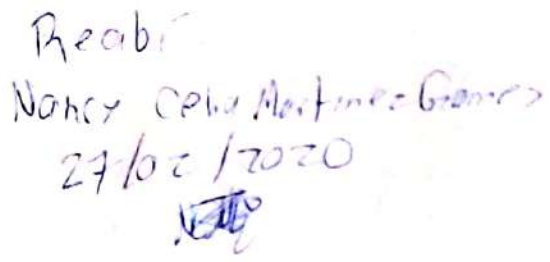 Recibí
Nancy Celia Martinez Gomez
27/02/2020